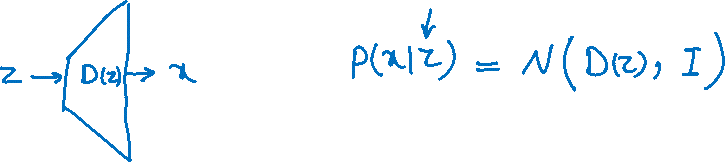 z → D(z) → x
P(x|z) = N(D(z), I)